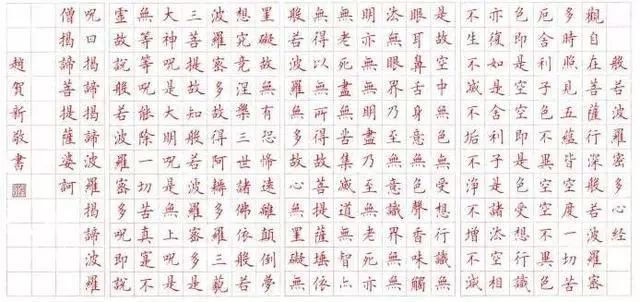 般若波羅蜜多心経
觀自在菩薩行深般若波羅蜜
多時照見五蘊皆空度一切苦
厄舍利子色不異空空不異色
色即是空空即是色受想行識
亦復如是舍利子是諸法空相
不生不滅不垢不淨不增不減
是故空中無色無受想行識無
眼耳鼻舌身意無色聲香味觸
法無眼界乃至無意識界無無
明亦無無明盡乃至無老死亦
無老死盡無苦集滅道無智亦
無得以無所得故菩提薩埵依
般若波羅蜜多故心無罣礙無
罣礙故無有恐怖遠離顛倒夢
想究竟涅槃三世諸佛依般若
波羅蜜多故得阿耨多羅三藐
三菩提故知般若波羅蜜多是
大神咒是大明咒是無上咒是
無等等咒能除一切苦真實不
虛故說般若波羅蜜多咒即說
咒曰揭諦揭諦波羅揭諦波羅
僧揭諦菩提薩婆訶
趙賀新敬書